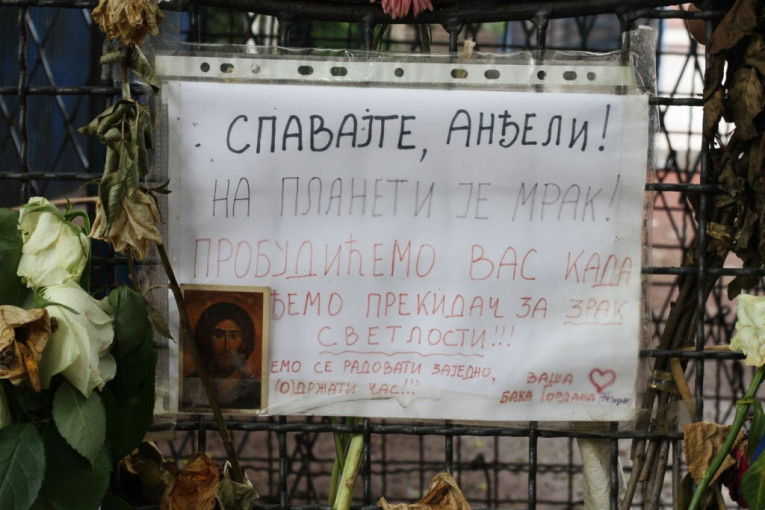 СПАВАЈТЕ, АНЂЕЛИ!
НА ПЛАНЕТИ ЈЕ МРАК!
ПРОБУДИЋЕМО ВАС КАДА
ЂЕМО ПРЕКИДАЧ ЗА ЗРАК
СВЕТЛОСТИ!!!
ЕМО СЕ РАДОВАТИ ЗАЈЕДНО,
(О)ДРЖАТИ ЧАС!!!
ВАША
БАКА ГОРДАНА